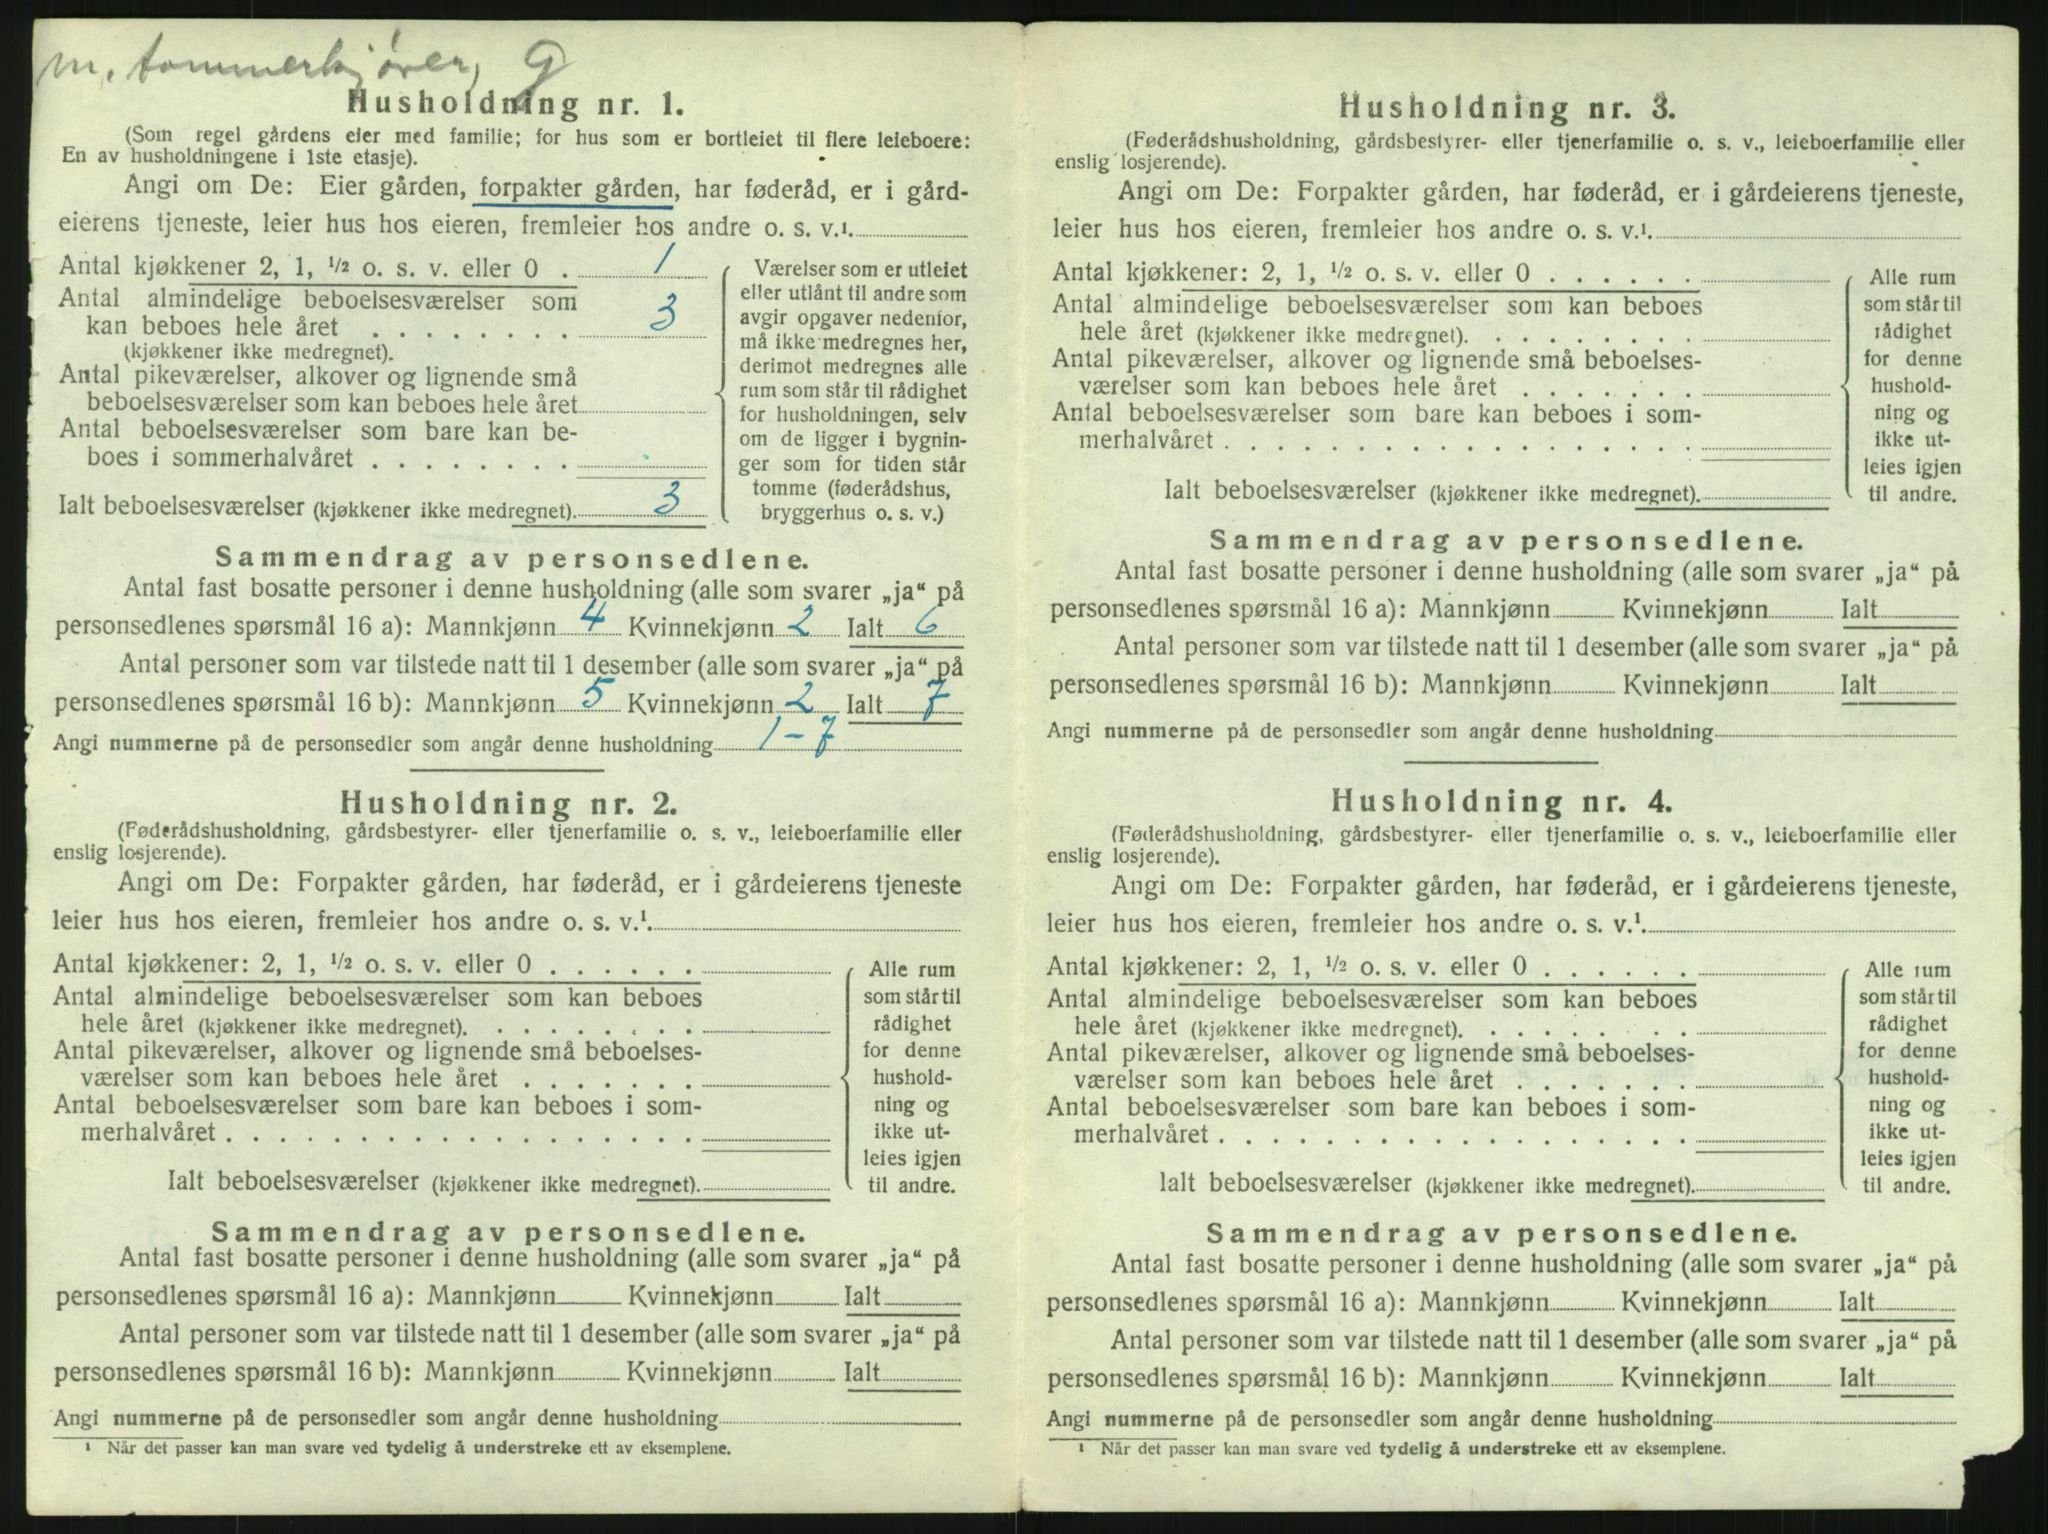 m. tømmerkjører, g
Husholdning nr. 1.
(Som regel gårdens eier med familie; for hus som er bortleiet til flere leieboere:
En av husholdningene i 1ste etasje).
Angi om De: Eier gården, forpakter gården, har føderåd, er i gård-
eierens tjeneste, leier hus hos eieren, fremleier hos andre o. s. v.¹
Antal kjøkkener 2, 1, ½ o. s. v. eller 0 . 1
Antal almindelige beboelsesværelser som
kan beboes hele året . . . . . . . . 3
(kjøkkener ikke medregnet).
Antal pikeværelser, alkover og lignende små
beboelsesværelser som kan beboes hele året
Antal beboelsesværelser som bare kan be-
boes i sommerhalvåret . . . . . . . .
Ialt beboelsesværelser (kjøkkener ikke medregnet). 3
Værelser som er utleiet
eller utlånt til andre som
avgir opgaver nedenfor,
må ikke medregnes her,
derimot medregnes alle
rum som står til rådighet
for husholdningen, selv
om de ligger i bygnin-
ger som for tiden står
tomme (føderådshus,
bryggerhus o. s. v.)
Sammendrag av personsedlene.
Antal fast bosatte personer i denne husholdning (alle som svarer „ja“ på
personsedlenes spørsmål 16 a): Mannkjønn 4 Kvinnekjønn 2 Ialt 6
Antal personer som var tilstede natt til 1 desember (alle som svarer „ja“ på
personsedlenes spørsmål 16 b): Mannkjønn 5 Kvinnekjønn 2 Ialt 7
Angi nummerne på de personsedler som angår denne husholdning 1 - 7
Husholdning nr. 2.
(Føderådshusholdning, gårdsbestyrer- eller tjenerfamilie o. s. v., leieboerfamilie eller
enslig losjerende).
Angi om De: Forpakter gården, har føderåd, er i gårdeierens tjeneste
leier hus hos eieren, fremleier hos andre o. s. v.¹
Antal kjøkkener: 2, 1, ½ o. s. v. eller 0 . . . . . .
Antal almindelige beboelsesværelser som kan beboes
hele året (kjøkkener ikke medregnet). . . . . . . . .
Antal pikeværelser, alkover og lignende små beboelses-
værelser som kan beboes hele året . . . . . . .
Antal beboelsesværelser som bare kan beboes i som-
merhalvåret . . . . . . . . . . . . . . . . . .
Ialt beboelsesværelser (kjøkkener ikke medregnet).
Alle rum
som står til
rådighet
for denne
hushold-
ning og
ikke ut-
leies igjen
til andre.
Sammendrag av personsedlene.
Antal fast bosatte personer i denne husholdning (alle som svarer „ja“ på
personsedlenes spørsmål 16 a): Mannkjønn Kvinnekjønn Ialt
Antal personer som var tilstede natt til 1 desember (alle som svarer „ja“ på
personsedlenes spørsmål 16 b): Mannkjønn Kvinnekjønn Ialt
Angi nummerne på de personsedler som angår denne husholdning
¹ Når det passer kan man svare ved tydelig å understreke ett av eksemplene.
Husholdning nr. 3.
(Føderådshusholdning, gårdsbestyrer- eller tjenerfamilie o. s. v., leieboerfamilie eller
enslig losjerende).
Angi om De: Forpakter gården, har føderåd, er i gårdeierens tjeneste,
leier hus hos eieren, fremleier hos andre o. s. v.¹
Antal kjøkkener: 2, 1, ½ o. s. v. eller 0 . . . . . .
Antal almindelige beboelsesværelser som kan beboes
hele året (kjøkkener ikke medregnet). . . . . . . . .
Antal pikeværelser, alkover og lignende små beboelses-
værelser som kan beboes hele året . . . . . . .
Antal beboelsesværelser som bare kan beboes i som-
merhalvåret . . . . . . . . . . . . . . . . . .
Ialt beboelsesværelser (kjøkkener ikke medregnet).
Alle rum
som står til
rådighet
for denne
hushold-
ning og
ikke ut-
leies igjen
til andre.
Sammendrag av personsedlene.
Antal fast bosatte personer i denne husholdning (alle som svarer „ja“ på
personsedlenes spørsmål 16 a): Mannkjønn Kvinnekjønn Ialt
Antal personer som var tilstede natt til 1 desember (alle som svarer „ja“ på
personsedlenes spørsmål 16 b): Mannkjønn Kvinnekjønn Ialt
Angi nummerne på de personsedler som angår denne husholdning
Husholdning nr. 4.
(Føderådshusholdning, gårdsbestyrer- eller tjenerfamilie o. s. v., leieboerfamilie eller
enslig losjerende).
Angi om De: Forpakter gården, har føderåd, er i gårdeierens tjeneste,
leier hus hos eieren, fremleier hos andre o. s. v.¹
Antal kjøkkener: 2, 1, ½ o. s. v. eller 0 . . . . . .
Antal almindelige beboelsesværelser som kan beboes
hele året (kjøkkener ikke medregnet). . . . . . . . .
Antal pikeværelser, alkover og lignende små beboelses-
værelser som kan beboes hele året . . . . . . .
Antal beboelsesværelser som bare kan beboes i som-
merhalvåret . . . . . . . . . . . . . . . . . .
Ialt beboelsesværelser (kjøkkener ikke medregnet).
Alle rum
som står til
rådighet
for denne
hushold-
ning og
ikke ut-
leies igjen
til andre.
Sammendrag av personsedlene.
Antal fast bosatte personer i denne husholdning (alle som svarer „ja“ på
personsedlenes spørsmål 16 a): Mannkjønn Kvinnekjønn Ialt
Antal personer som var tilstede natt til 1 desember (alle som svarer „ja“ på
personsedlenes spørsmål 16 b): Mannkjønn Kvinnekjønn Ialt
Angi nummerne på de personsedler som angår denne husholdning
¹ Når det passer kan man svare ved tydelig å understreke ett av eksemplene.